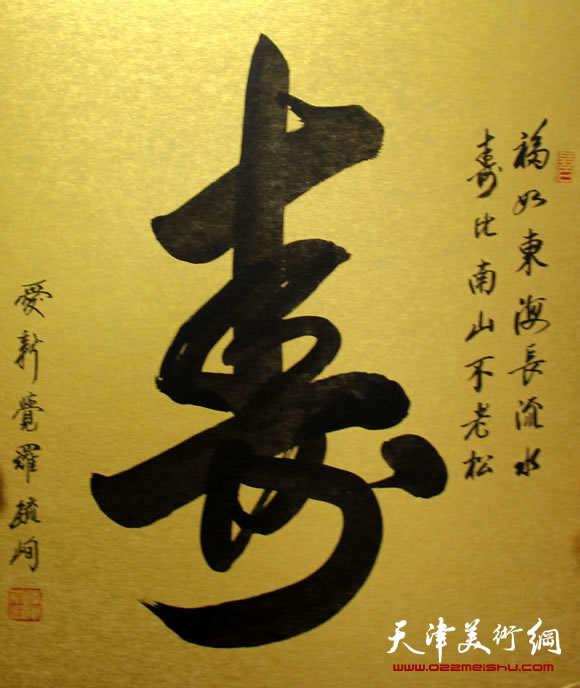 福如東海長流水
壽比南山不老松
壽
愛新覺羅毓峋
天津美術網
www.022meishu.com